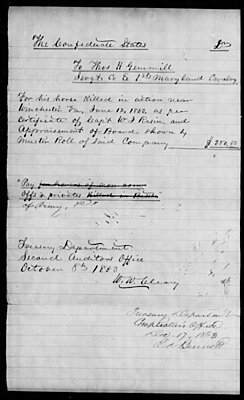 The Confederate States Dr
To Thos H Gemmill
Sergt Co E 1st Maryland Cavalry
For his horse killed in action near
Winchester Va, June 13, 1863, as per
Certificate of Capt W I Rasin, and
Appraisement of Board, shown by
Muster Roll of said Company
"Pay
offs & privates killed in battle
of Army,
Treasury Department
Second Auditors Office
October 8th 1863
W. W. Cleary
Treasury Department
Comptrollers Office
Dec 17, 1863